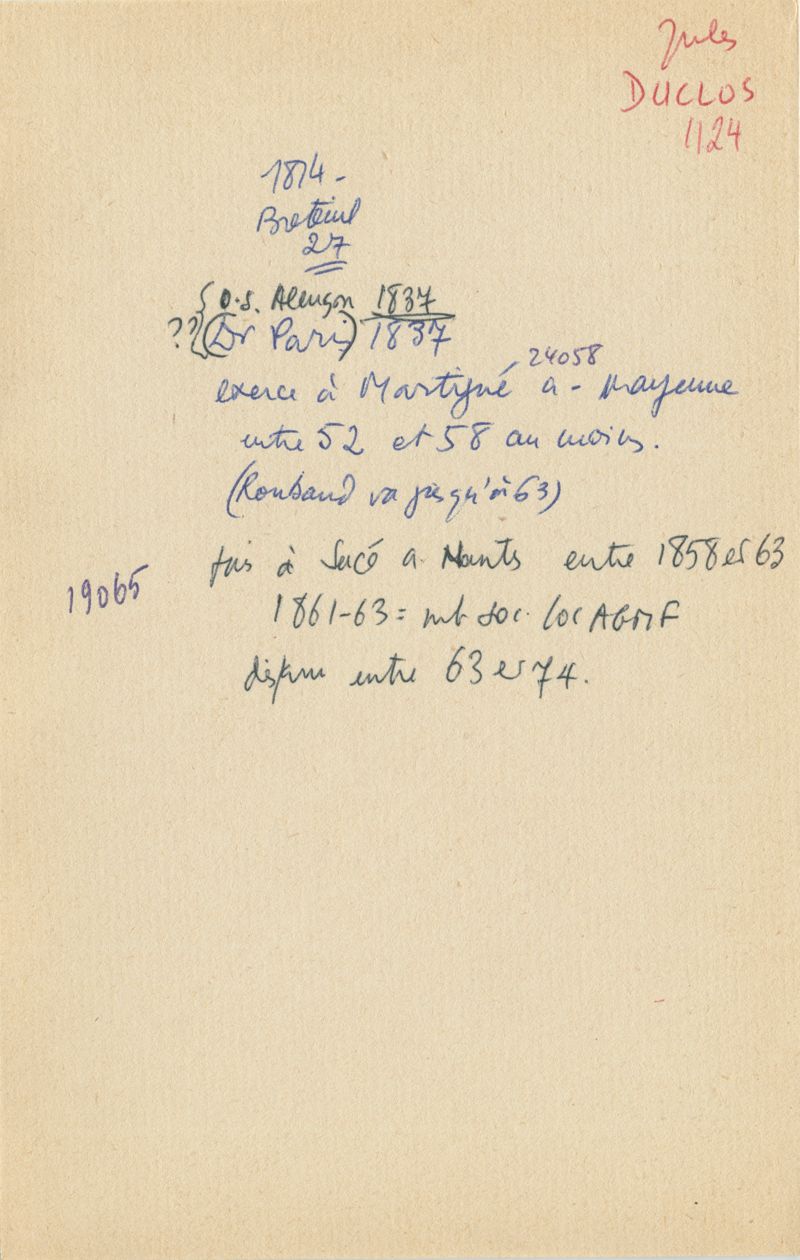 Jules
DUCLOS
1124
1814 -
Breteuil
27
{ O.S. Alençon 1837
?? (Dr Paris) 1837
24058
exerce à Martigné a - Mayenne
entre 52 et 58 au moins.
(Roubaud va jusqu'à 63)
fuis à Sacé a. Nants entre 1858 et 63
19065
1861-63 = mb soc. loc AGMF
disparu entre 63 et 74.